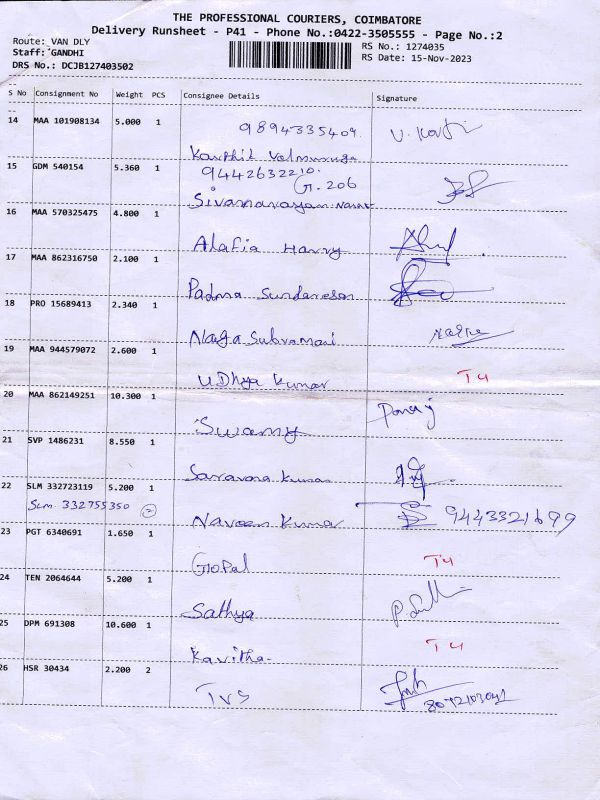 THE PROFESSIONAL COURIERS, COIMBATORE
Delivery Runsheet - P41 - Phone No.:0422-3505555 - Page No.:2
Route: VAN DLY
Staff: GANDHI
DRS No.: DCJB127403502
RS No.: 1274035
RS Date: 15-Nov-2023
S No Consignment No Weight PCS Consignee Details Signature
14 MAA 101908134 5.000 1 9894335409 V. Karthi
Karthik Velmuruga
15 GDM 540154 5.360 1 9442632210. G.206
Sivanarayan
16 MAA 570325475 4.800 1
Alafia Harry
17 MAA 862316750 2.100 1
Padma Sundaresan
18 PRO 15689413 2.340 1
Naga Subramani
19 MAA 944579072 2.600 1
Udhya Kumar T4
20 MAA 862149251 10.300 1
Swamy
21 SVP 1486231 8.550 1
Saravana Kumar
22 SLM 332723119 5.200 1
Slm 332755350 2
Naveen Kumar 9443321699
23 PGT 6340691 1.650 1
Gopal T4
24 TEN 2064644 5.200 1
Sathya
25 DPM 691308 10.600 1
Kavitha T4
26 HSR 30434 2.200 2
TVS
8072103042